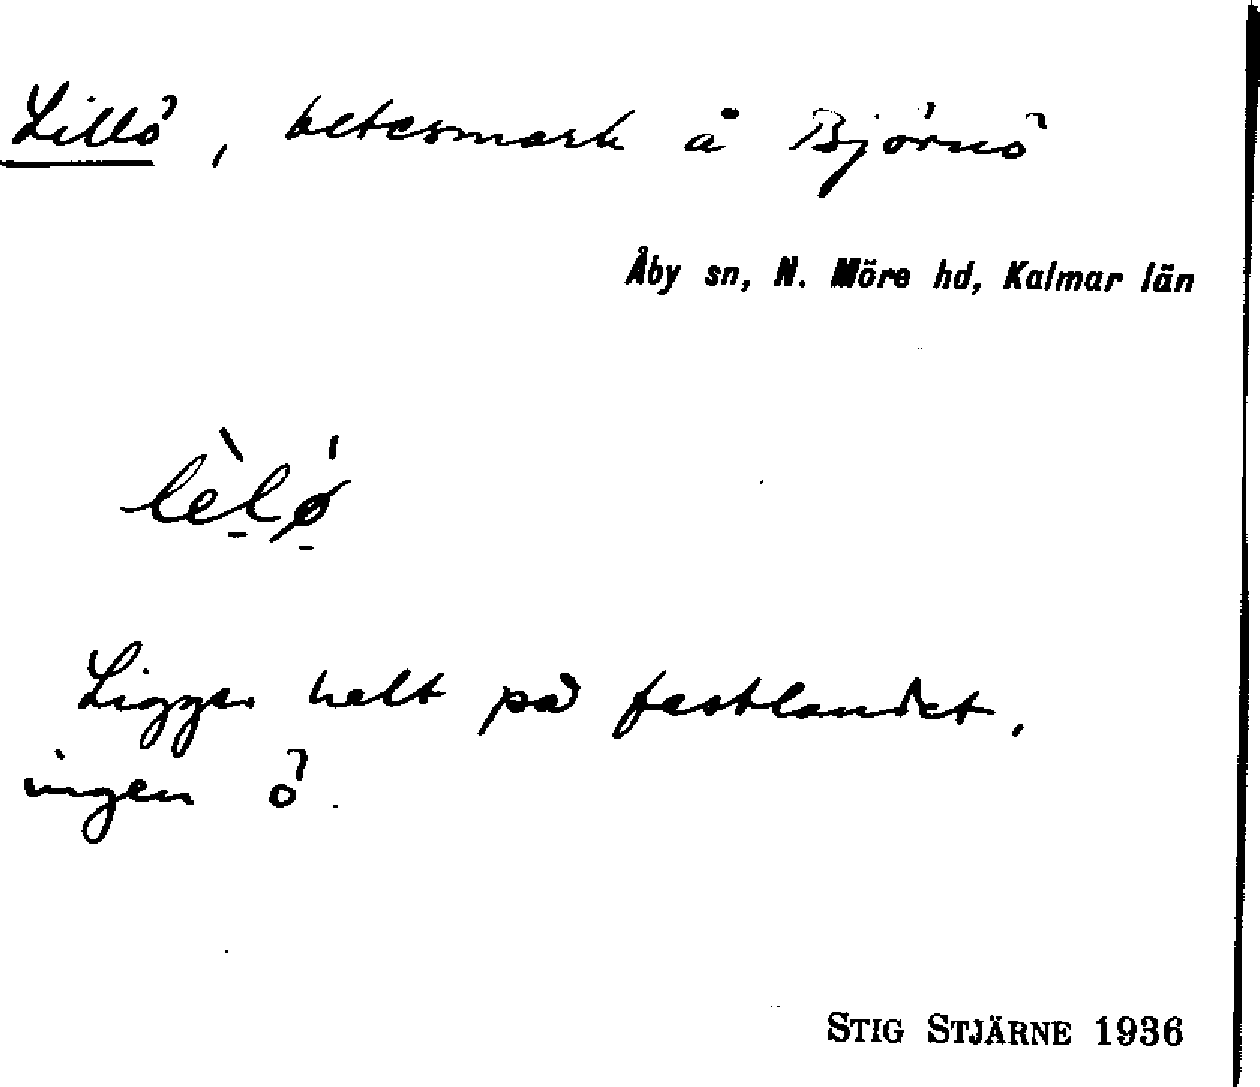 Lillö, betesmark å Björnö
Åby sn, N. Möre hd, Kalmar län
lè̠lǿ̠
Ligger helt på fastlandet,
ingen ö.
STIG STJÄRNE 1936